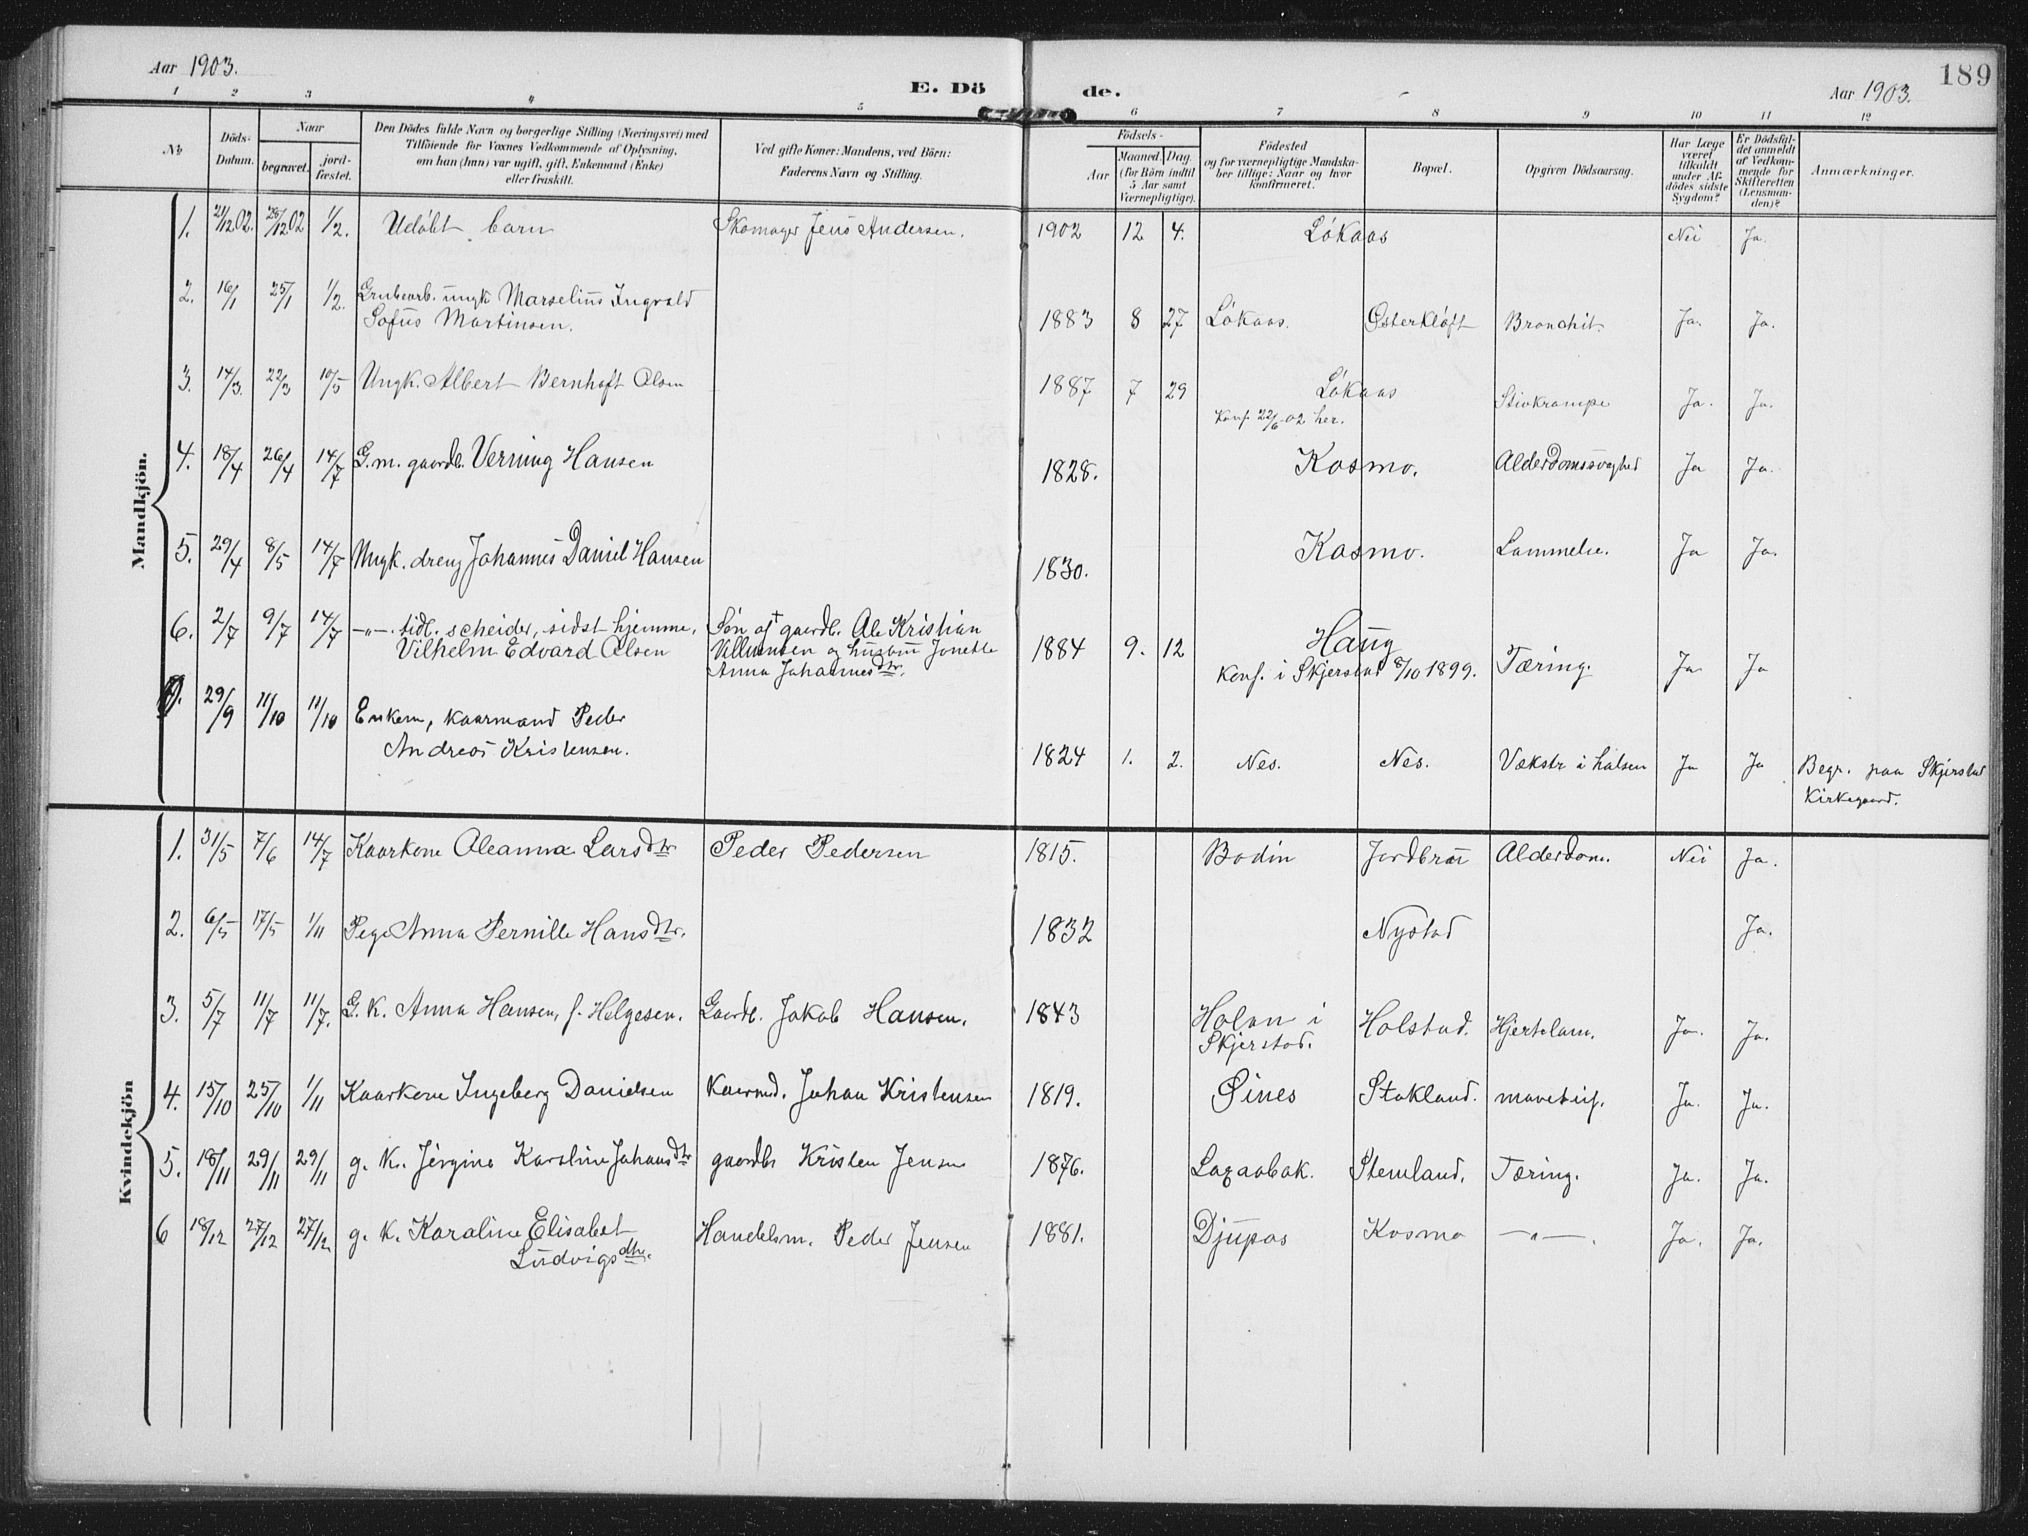 Aar 1903.
E. Dö de.
Aar 1903.
189
1 2 3 4 5 6 7 8 9 10 11 12
No
Döds-Datum.
Naar
begravet.
jord-fæstet.
Den Dödes fulde Navn og borgerlige Stilling (Næringsvei) med
Tilföiende for Voxnes Vedkommende af Oplysning,
om han (hun) var ugift, gift, Enkemand (Enke)
eller fraskilt.
Ved gifte Koner: Mandens, ved Börn:
Faderens Navn og Stilling.
Födsels-
Aar
Maaned. Dag.
(for Börn indtil
5 Aar samt
Værnepligtige).
Födested
og for værnepligtige Mandska-
ber tillige: Naar og hvor
konfirmeret.
Bopæl.
Opgiven Dödsaarsag.
Har Læge
været
tilkaldt
under Af-
dödes sidste
Sygdom?
Er Dödsfal-
det anmeldt
af Vedkom-
mende for
Skifteretten
(Lensman-
den)?
Anmærkninger.
Mandkjön.
1. 21/12 02. 26/12 02 1/2. Udøbt barn Skomager Jens Andersen. 1902 12 4. Løkaas Nei Ja.
2. 16/1 25/1 1/2. Grubearb. ungk. Marselius Ingvald
Sofus Martinsen. 1883 8 27 Løkaas. Østerkløft Bronchit. Ja. Ja.
3. 14/3. 22/3 10/5 Ungk. Albert Bernhoft Olsen 1887 7 29 Løkaas
Konf. 22/6 02 her. Stivkrampe Ja. Ja.
4. 18/4 26/4 14/7 G.m. gaardb. Verning Hansen 1828. Kosmo. Alderdomssvaghed Ja Ja.
5. 29/4 8/5 14/7 Ungk. dreng Johannes Daniel Hansen 1830. Kosmo. Lammelse. Ja Ja.
6. 2/7 9/7 14/7 —„— tidl. scheider, sidst hjemme,
Vilhelm Edvard Olsen Søn af gaardb. Ole Kristian
Villumsen og hustru Jonette
Anna Johannesdtr. 1884 9. 12 Haug
Konf. i Skjerstad 8/10 1899. Tæring. Ja. Ja
7. 29/9 11/10 11/10 Enkem, kaarmand Peder
Andreas Kristensen. 1824 1. 2. Nes. Nes. Vækstr i halsen Ja Ja Begr. paa Skjerstad
Kirkegaard.
Kvindekjön
1. 31/5 7/6 14/7 Kaarkone Oleanna Larsdtr Peder Pedersen 1815. Bodin Jordbru Alderdom. Nei Ja.
2. 6/5 17/5 1/11 Pige Anna Pernille Hansdtr. 1832 Nystad Ja.
3. 5/7 11/7 11/7. G.K. Anna Hansen, f. Helgesen. Gaardb. Jakob Hansen. 1843 Holan i
Skjerstad. Holstad. Hjertelam. Ja. Ja.
4. 15/10 25/10 1/11 Kaarkone Ingeberg Danielsen Kaarmd. Johan Kristensen 1819. Øines Stokland. Ja. Ja.
5. 18/11 29/11 29/11 g. K. Jørgine Karoline Johansdtr gaardbr Kristen Jensen 1876. Laxaabak. Stemland. Tæring. Ja. Ja.
6 18/12 27/12 27/12 g. K. Karoline Elisabet
Ludvigsdtr. Handelsm. Peder Jensen 1881. Djupos Kosmo —„—. Ja. Ja.